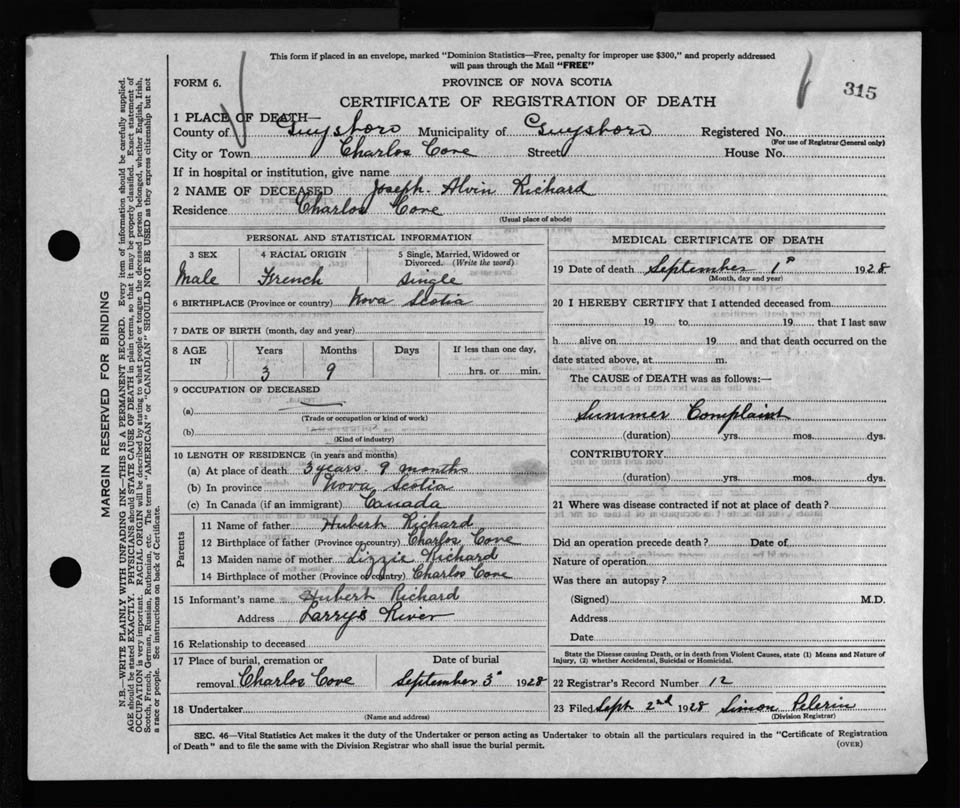 This form if placed in an envelope, marked "Dominion Statistics—Free, penalty for improper use $300," and properly addressed
will pass through the Mail "FREE"
FORM 6. PROVINCE OF NOVA SCOTIA
315
CERTIFICATE OF REGISTRATION OF DEATH
1 PLACE OF DEATH—
County of Guysboro Municipality of Guysboro Registered No.
(For use of Registrar General only)
City or Town Charlos Cove Street House No.
If in hospital or institution, give name
2 NAME OF DECEASED Joseph. Alvin Richard
Residence Charlos Cove
(Usual place of abode)
MARGIN RESERVED FOR BINDING
N.B.—WRITE PLAINLY WITH UNFADING INK—THIS IS A PERMANENT RECORD. Every item of information should be carefully supplied.
AGE should be stated EXACTLY. PHYSICIANS should STATE CAUSE OF DEATH in plain terms, so that it may be properly classified. Exact statement of
OCCUPATION is very important. RACIAL ORIGIN will be described by stating to what people or tongue the deceased person belonged, whether English, Irish,
Scotch, French, German, Russian, Ruthenian, etc. The terms "AMERICAN" or "CANADIAN" SHOULD NOT BE USED as they express citizenship but not
a race or people. See instructions on back of Certificate.
PERSONAL AND STATISTICAL INFORMATION
3 SEX 4 RACIAL ORIGIN 5 Single, Married, Widowed or
Divorced. (Write the word)
Male French Single
6 BIRTHPLACE (Province or country) Nova Scotia
7 DATE OF BIRTH (month, day and year)
8 AGE IN Years Months Days If less than one day,
3 9 hrs. or min.
9 OCCUPATION OF DECEASED
(a)
(Trade or occupation or kind of work)
(b)
(Kind of industry)
10 LENGTH OF RESIDENCE (in years and months)
(a) At place of death 3 years. 9 months
(b) In province Nova Scotia
(c) In Canada (if an immigrant) Canada
Parents
11 Name of father Hubert Richard
12 Birthplace of father (Province or country) Charlos Cove
13 Maiden name of mother Lizzie Richard
14 Birthplace of mother (Province or country) Charlos Cove
15 Informant's name Hubert Richard
Address Larrys River
16 Relationship to deceased
17 Place of burial, cremation or Date of burial
removal Charlos Cove September 3" 1928
18 Undertaker
(Name and address)
MEDICAL CERTIFICATE OF DEATH
19 Date of death September 1st 1928
(Month, day and year)
20 I HEREBY CERTIFY that I attended deceased from
19 to 19 that I last saw
h alive on 19 and that death occurred on the
date stated above, at m.
The CAUSE of DEATH was as follows:—
Summer Complaint
(duration) yrs. mos. dys.
CONTRIBUTORY
(duration) yrs. mos. dys.
21 Where was disease contracted if not at place of death?
Did an operation precede death? Date of
Nature of operation
Was there an autopsy?
(Signed) M.D.
Address
Date
State the Disease causing Death, or in death from Violent Causes, state (1) Means and Nature of
Injury, (2) whether Accidental, Suicidal or Homicidal.
22 Registrar's Record Number 12
23 Filed Sept 2nd 1928 Simon Pelerin
(Division Registrar)
SEC. 46—Vital Statistics Act makes it the duty of the Undertaker or person acting as Undertaker to obtain all the particulars required in the "Certificate of Registration
of Death" and to file the same with the Division Registrar who shall issue the burial permit.
(OVER)